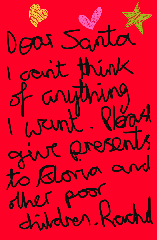 Dear Santa
I can't think
of anything
I want. Please
give presents
to Gloria and
other poor
children. Rachel